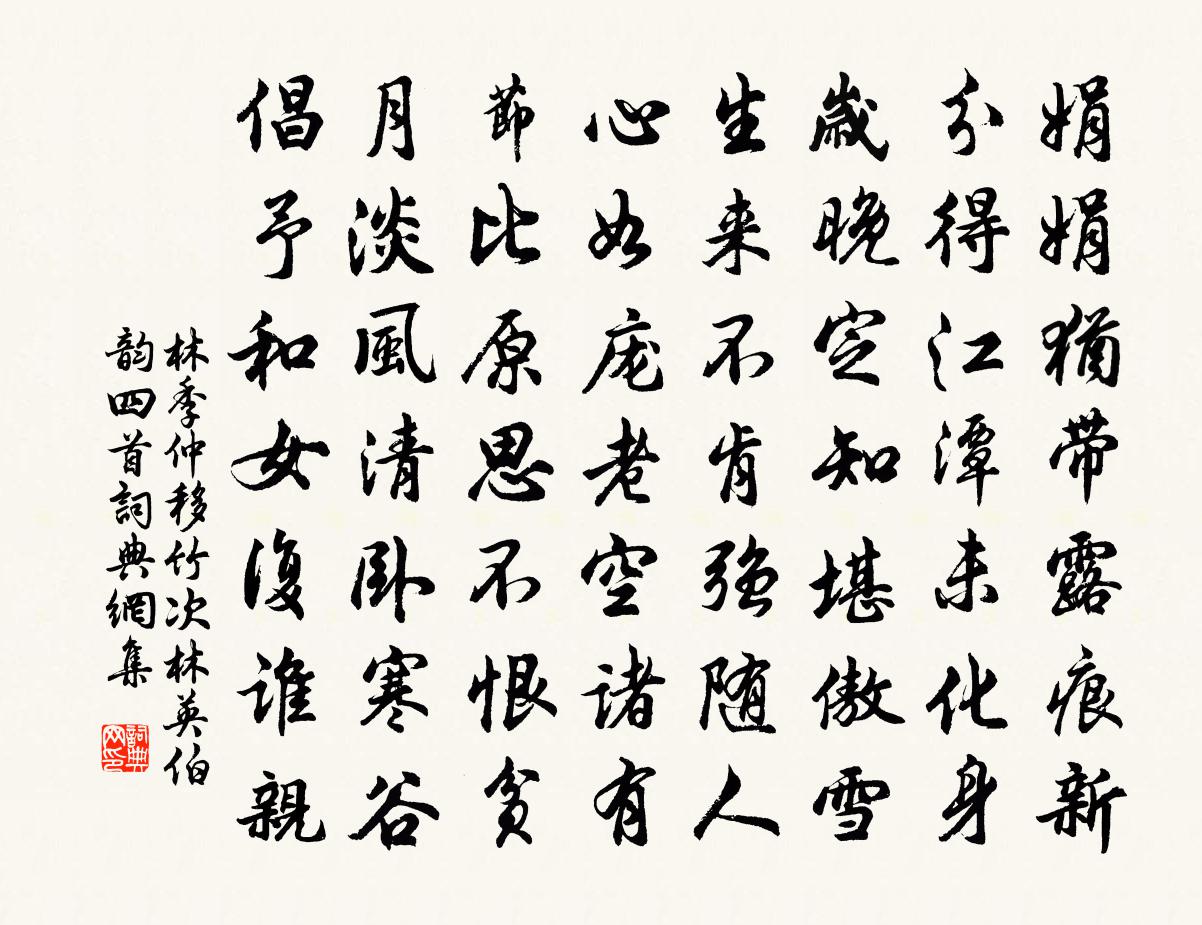 娟娟猶帶露痕新
分得江潭未化身
歲晚定知堪傲雪
生来不肯強隨人
心如庞老空諸有
節比原思不恨貧
月淡風清卧寒谷
倡予和女復誰親
林季仲移竹次林英伯
韵四首詞典網集
詞典网印